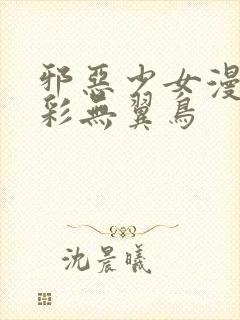 邪惡少女漫
彩無翼鳥
沈晨曦